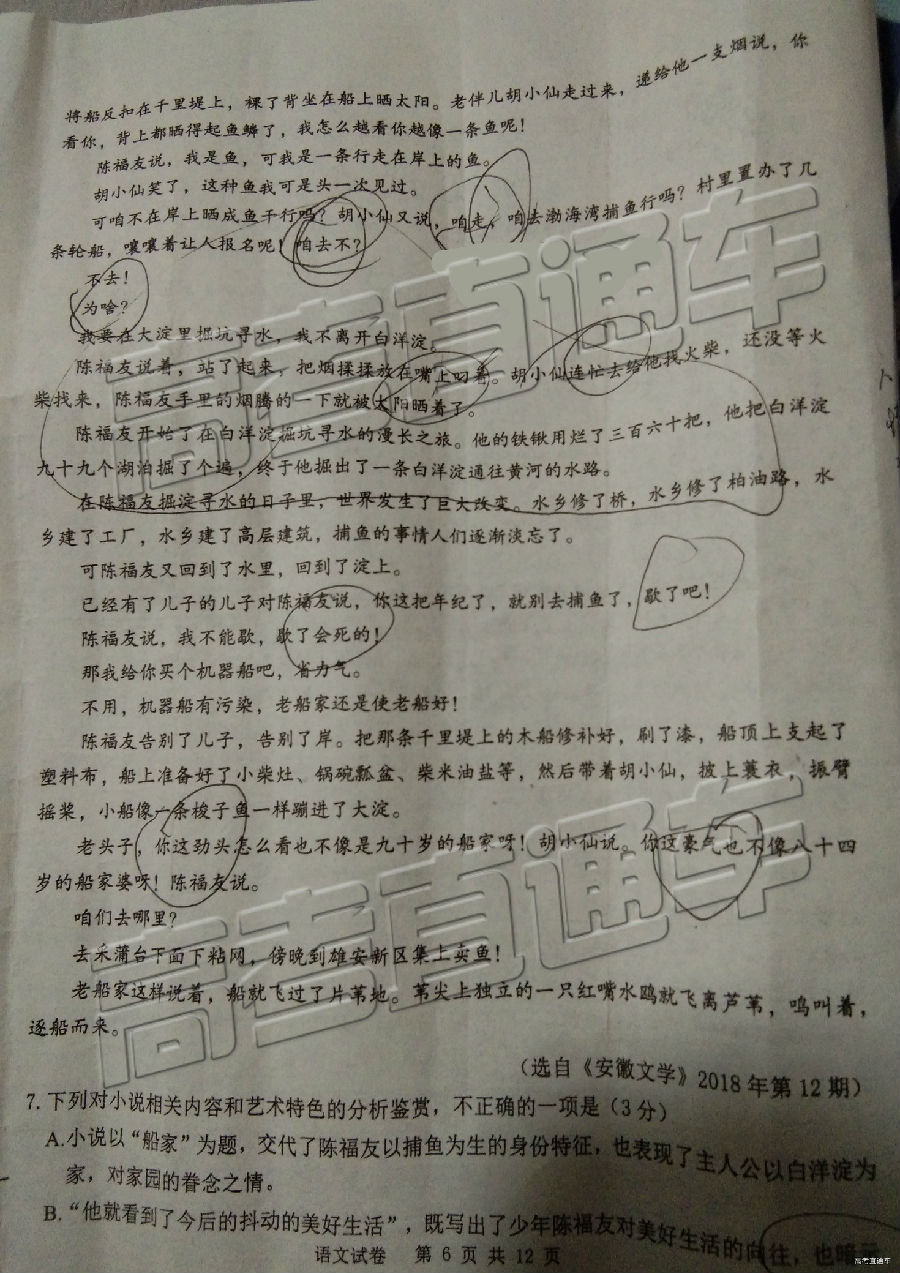 将船反扣在千里堤上，裸了背坐在船上晒太阳。老伴儿胡小仙走过来，递给他一支烟说，你
看你，背上都晒得起鱼鳞了，我怎么越看你越像一条鱼呢！
陈福友说，我是鱼，可我是一条行走在岸上的鱼。
胡小仙笑了，这种鱼我可是头一次见过。
可咱不在岸上晒成鱼干行吗？胡小仙又说，咱走，咱去渤海湾捕鱼行吗？村里置办了几
条轮船，嚷嚷着让人报名呢！咱去不？
不去！
为啥？
我要在大淀里掘坑寻水，我不离开白洋淀。
陈福友说着，站了起来，把烟揉揉放在嘴上叼着。胡小仙连忙去给他找火柴，还没等火
柴找来，陈福友手里的烟腾的一下就被太阳晒着了。
陈福友开始了在白洋淀掘坑寻水的漫长之旅。他的铁锹用烂了三百六十把，他把白洋淀
九十九个湖泊掘了个遍，终于他掘出了一条白洋淀通往黄河的水路。
在陈福友掘淀寻水的日子里，世界发生了巨大改变。水乡修了桥，水乡修了柏油路，水
乡建了工厂，水乡建了高层建筑，捕鱼的事情人们逐渐淡忘了。
可陈福友又回到了水里，回到了淀上。
已经有了儿子的儿子对陈福友说，你这把年纪了，就别去捕鱼了，歇了吧！
陈福友说，我不能歇，歇了会死的！
那我给你买个机器船吧，省力气。
不用，机器船有污染，老船家还是使老船好！
陈福友告别了儿子，告别了岸。把那条千里堤上的木船修补好，刷了漆，船顶上支起了
塑料布，船上准备好了小柴灶、锅碗瓢盆、柴米油盐等，然后带着胡小仙，披上蓑衣，振臂
摇桨，小船像一条梭子鱼一样蹦进了大淀。
老头子，你这劲头怎么看也不像是九十岁的船家呀！胡小仙说。你这豪气也不像八十四
岁的船家婆呀！陈福友说。
咱们去哪里？
去采蒲台下面下粘网，傍晚到雄安新区集上卖鱼！
老船家这样说着，船就飞过了片苇地。苇尖上独立的一只红嘴水鸥就飞离芦苇，鸣叫着，
逐船而来。
（选自《安徽文学》2018年第12期）
7.下列对小说相关内容和艺术特色的分析鉴赏，不正确的一项是（3分）
A.小说以“船家”为题，交代了陈福友以捕鱼为生的身份特征，也表现了主人公以白洋淀为
家，对家园的眷念之情。
B.“他就看到了今后的抖动的美好生活”，既写出了少年陈福友对美好生活的向往，也暗示
语文试卷 第6页共12页
高考直通车
高考直通车
高考直通车